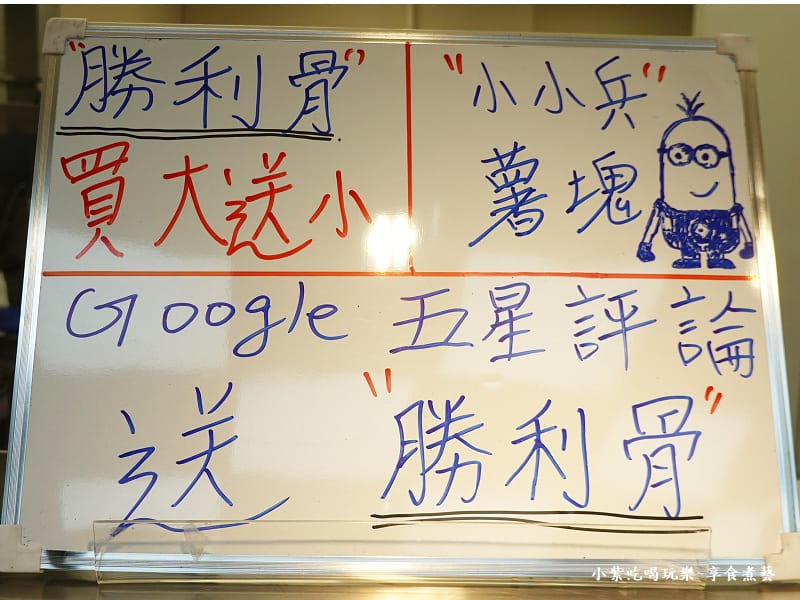 "勝利骨"
買大送小
"小小兵"
薯塊
Google 五星評論
送 "勝利骨"
小紫吃喝玩樂-享食煮藝